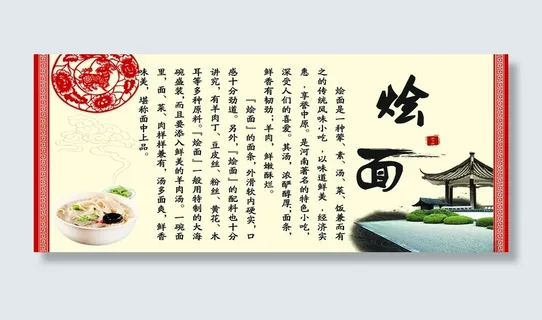 烩面
烩面是一种荤、素、汤、菜、饭兼而有
之的传统风味小吃，以味道鲜美，经济实
惠，享誉中原。是河南著名的特色小吃，
深受人们的喜爱。其汤，浓酽醇厚；面条，
鲜香有韧劲；羊肉，鲜嫩酥烂。
「烩面」的面条，外滑软内硬实，口
感十分劲道。另外，「烩面」的配料也十分
讲究，有羊肉丁、豆皮丝、粉丝、黄花、木
耳等多种原料。「烩面」一般用特制的大海
碗盛装，而且要添入鲜美的羊肉汤。一碗面
里，面、菜、肉样样兼有，汤多面爽，鲜香
味美，堪称面中上品。